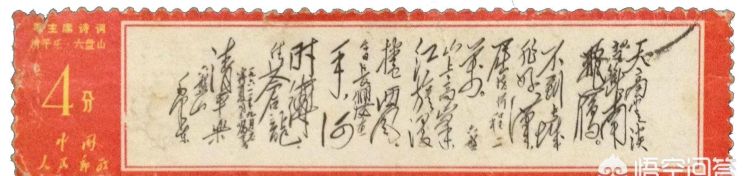 毛主席诗词
清平乐·六盘山
4分
中国
人民邮政
天高云淡
望断南
飞雁
不到长城
非好汉
屈指行程二
万 六盘
山上高峰
红旗漫
卷西风
今日长缨在
手 何
时缚
住苍龙
清平乐
六盘山
毛泽东
悟空问答